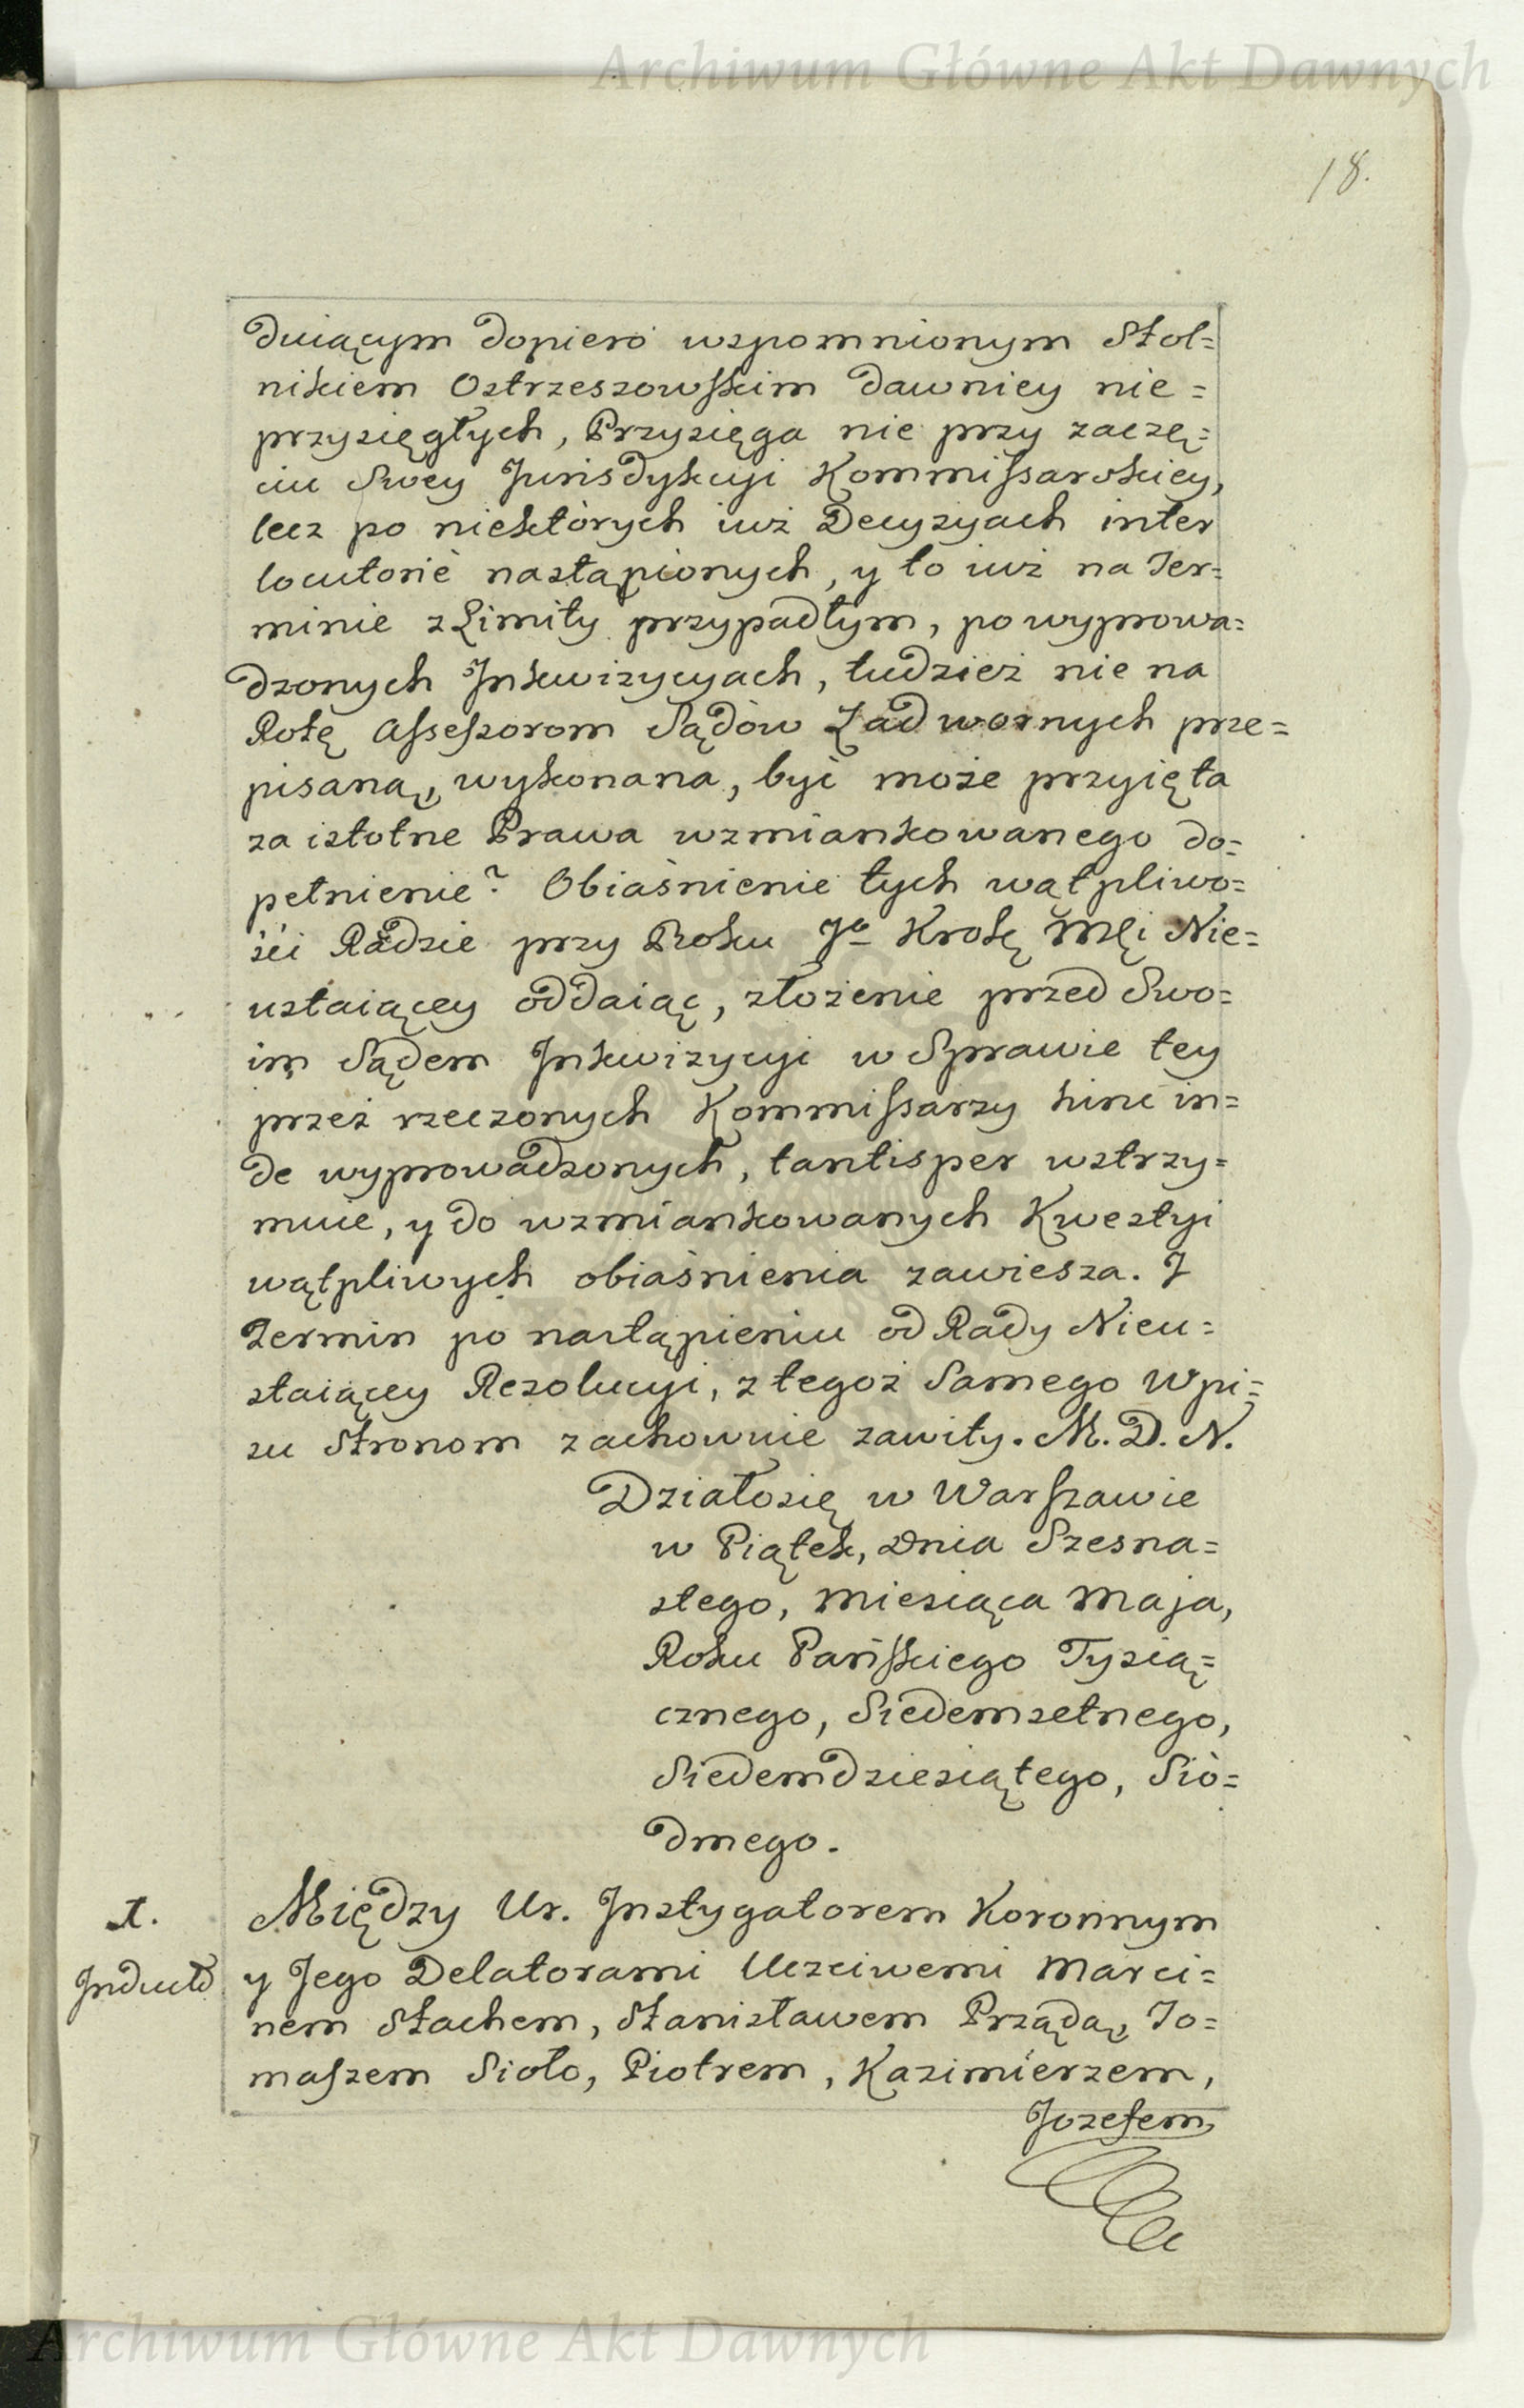 Archiwum Główne Akt Dawnych
18.
duiącym dopiero wspomnionym Stol=
nikiem Ostrzeszowskim dawniey nie=
przysięgłych, Przysięga nie przy zaczę=
ciu Swey Jurisdykcyi Kommissarskiey,
lecz po niektòrych iuż Decyzyach inter
locutoriè nastąpionych, y to iuż na Ter=
minie z Limity przypadłym, po wyprowa=
dzonych Inkwizycyach, tudzież nie na
Rotę Assessorom Sądòw Zadwornych prze=
pisaną, wykonana, być może przyięta
za istotne Prawa wzmiankowanego do=
pełnienie? Obiaśnienie tych wątpliwo=
ści Radzie przy Boku Jº Krolę Mći Nie=
ustaiącey oddaiąc, złożenie przed Swo=
im Sądem Inkwizycyi w Sprawie tey
przez rzeczonych Kommissarzy hinc in=
de wyprowadzonych, tantisper wstrzy=
muie, y do wzmiankowanych Kwestyi
wątpliwych obiaśnienia zawiesza. J
Termin po nastąpieniu od Rady Nieu=
staiącey Rezolucyi, z tegoż Samego Wpi=
su Stronom zachowuie zawity. M. D. N.
Działosię w Warszawie
w Piątek, Dnia Szesna=
stego, Miesiąca Maja,
Roku Pańskiego Tysią=
cznego, Siedemsetnego,
Siedemdziesiątego, Siò=
dmego.
Między Ur. Instygatorem Koronnym
Induct
y Jego Delatorami Uczciwemi Marci=
nem Stachem, Stanisławem Prządą, To=
maszem Sioło, Piotrem, Kazimierzem,
Jozefem
Archiwum Główne Akt Dawnych